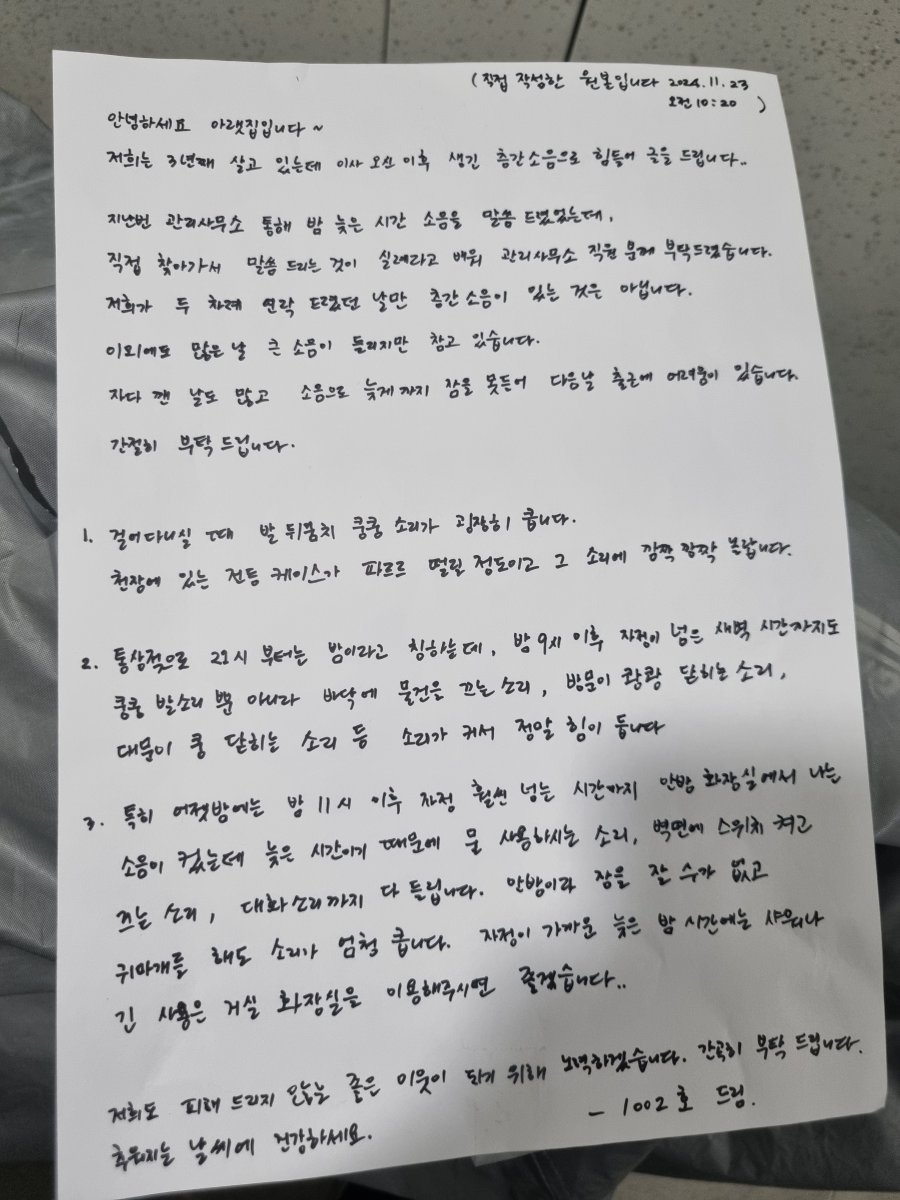 ( 직접 작성한 원본입니다 2024.11.23
오전 10:20 )
안녕하세요 아랫집입니다 ~
저희는 3년째 살고 있는데 이사 오신 이후 생긴 층간소음으로 힘들어 글을 드립니다..
지난번 관리사무소 통해 밤 늦은 시간 소음을 말씀 드렸었는데,
직접 찾아가서 말씀 드리는 것이 실례라고 배워 관리사무소 직원 분께 부탁드렸습니다.
저희가 두 차례 연락 드렸던 날만 층간소음이 있는 것은 아닙니다.
이외에도 많은 날 큰 소음이 들리지만 참고 있습니다.
자다 깬 날도 많고 소음으로 늦게까지 잠을 못들어 다음날 출근에 어려움이 있습니다.
간절히 부탁 드립니다.
1. 걸어다니실 때 발 뒤꿈치 쿵쿵 소리가 굉장히 큽니다.
천장에 있는 전등 케이스가 파르르 떨릴 정도이고 그 소리에 깜짝 깜짝 놀랍니다.
2. 통상적으로 21시 부터는 밤이라고 칭하는데, 밤 9시 이후 자정이 넘은 새벽 시간까지도
쿵쿵 발소리 뿐 아니라 바닥에 물건을 끄는 소리, 방문이 쾅쾅 닫히는 소리,
대문이 쿵 닫히는 소리 등 소리가 커서 정말 힘이 듭니다
3. 특히 어젯밤에는 밤 11시 이후 자정 훨씬 넘는 시간까지 안방 화장실에서 나는
소음이 컸는데 늦은 시간이기 때문에 물 사용하시는 소리, 벽면에 스위치 켜고
끄는 소리, 대화소리까지 다 들립니다. 안방이라 잠을 잘 수가 없고
귀마개를 해도 소리가 엄청 큽니다. 자정이 가까운 늦은 밤 시간에는 샤워나
긴 사용은 거실 화장실을 이용해주시면 좋겠습니다..
저희도 피해 드리지 않는 좋은 이웃이 되기 위해 노력하겠습니다. 간곡히 부탁 드립니다.
추워지는 날씨에 건강하세요.
- 1002호 드림.